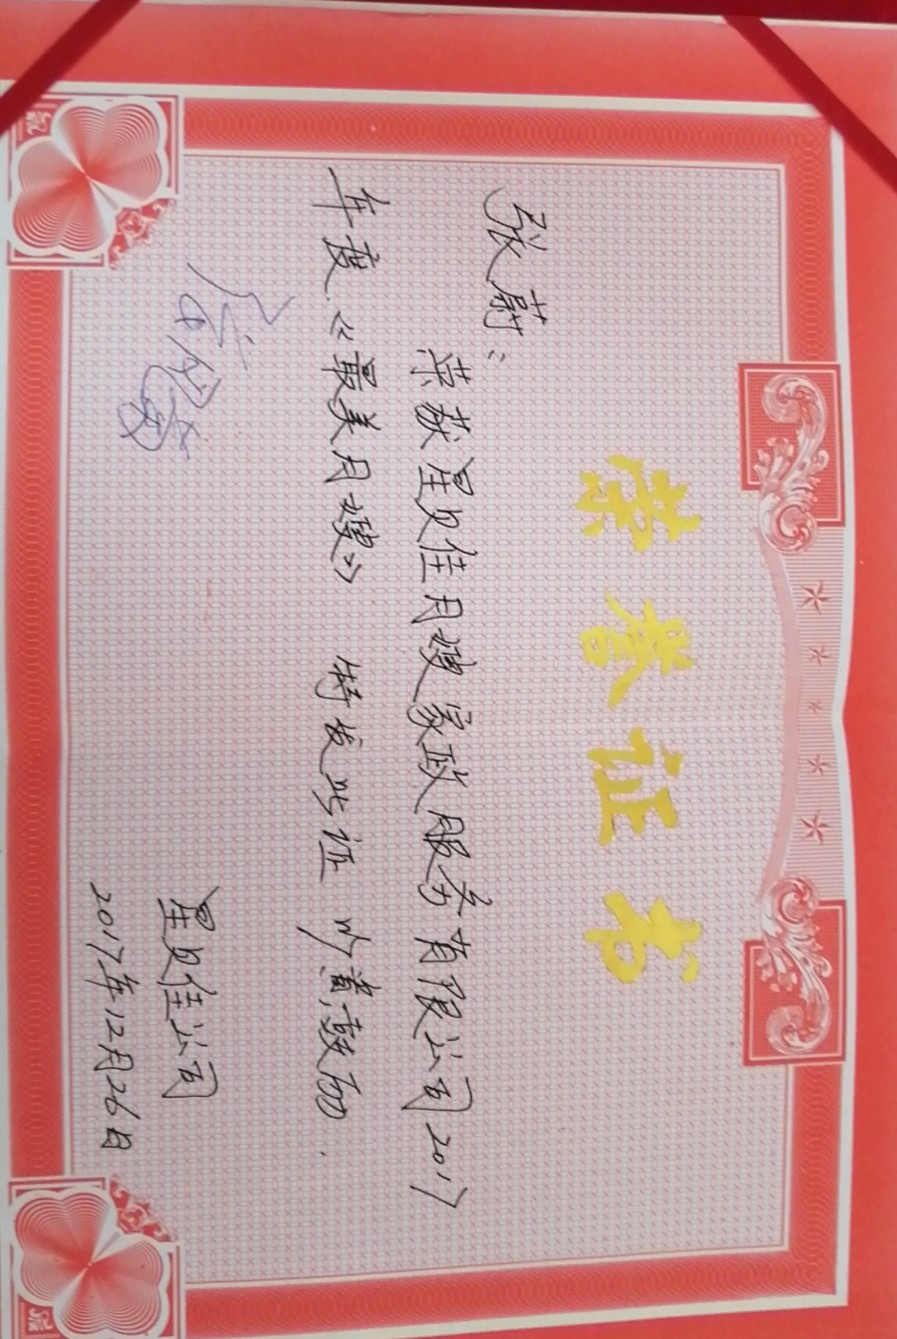 荣誉证书
张蔚：
荣获星贝佳月嫂家政服务有限公司2017
年度《最美月嫂》 特发此证 以资鼓励.
星贝佳公司
2017年12月26日